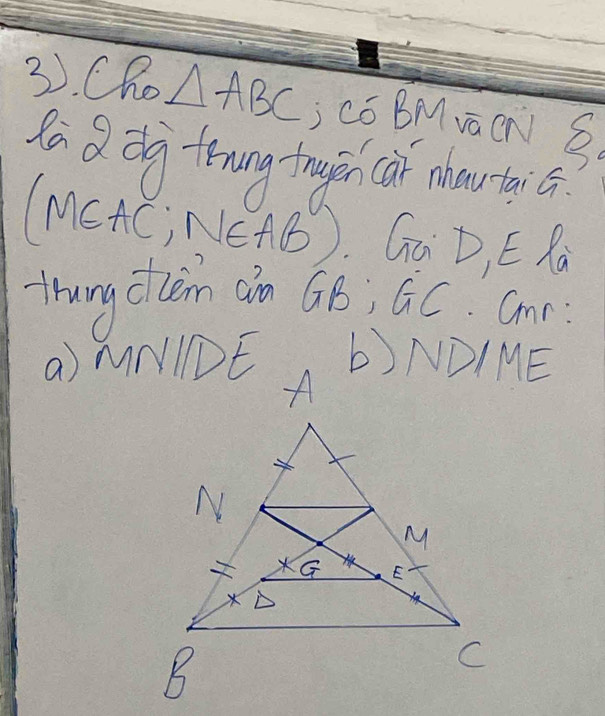 3). Cho △ABC; có BM và CN
là 2 đg trung truyến cắt nhau tại G.
(M∈AC; N∈AB). Gọi D, E là
trung điểm của GB; GC. Cmr:
a) MN//DE b) ND//ME
A
N
M
G
E
D
B
C